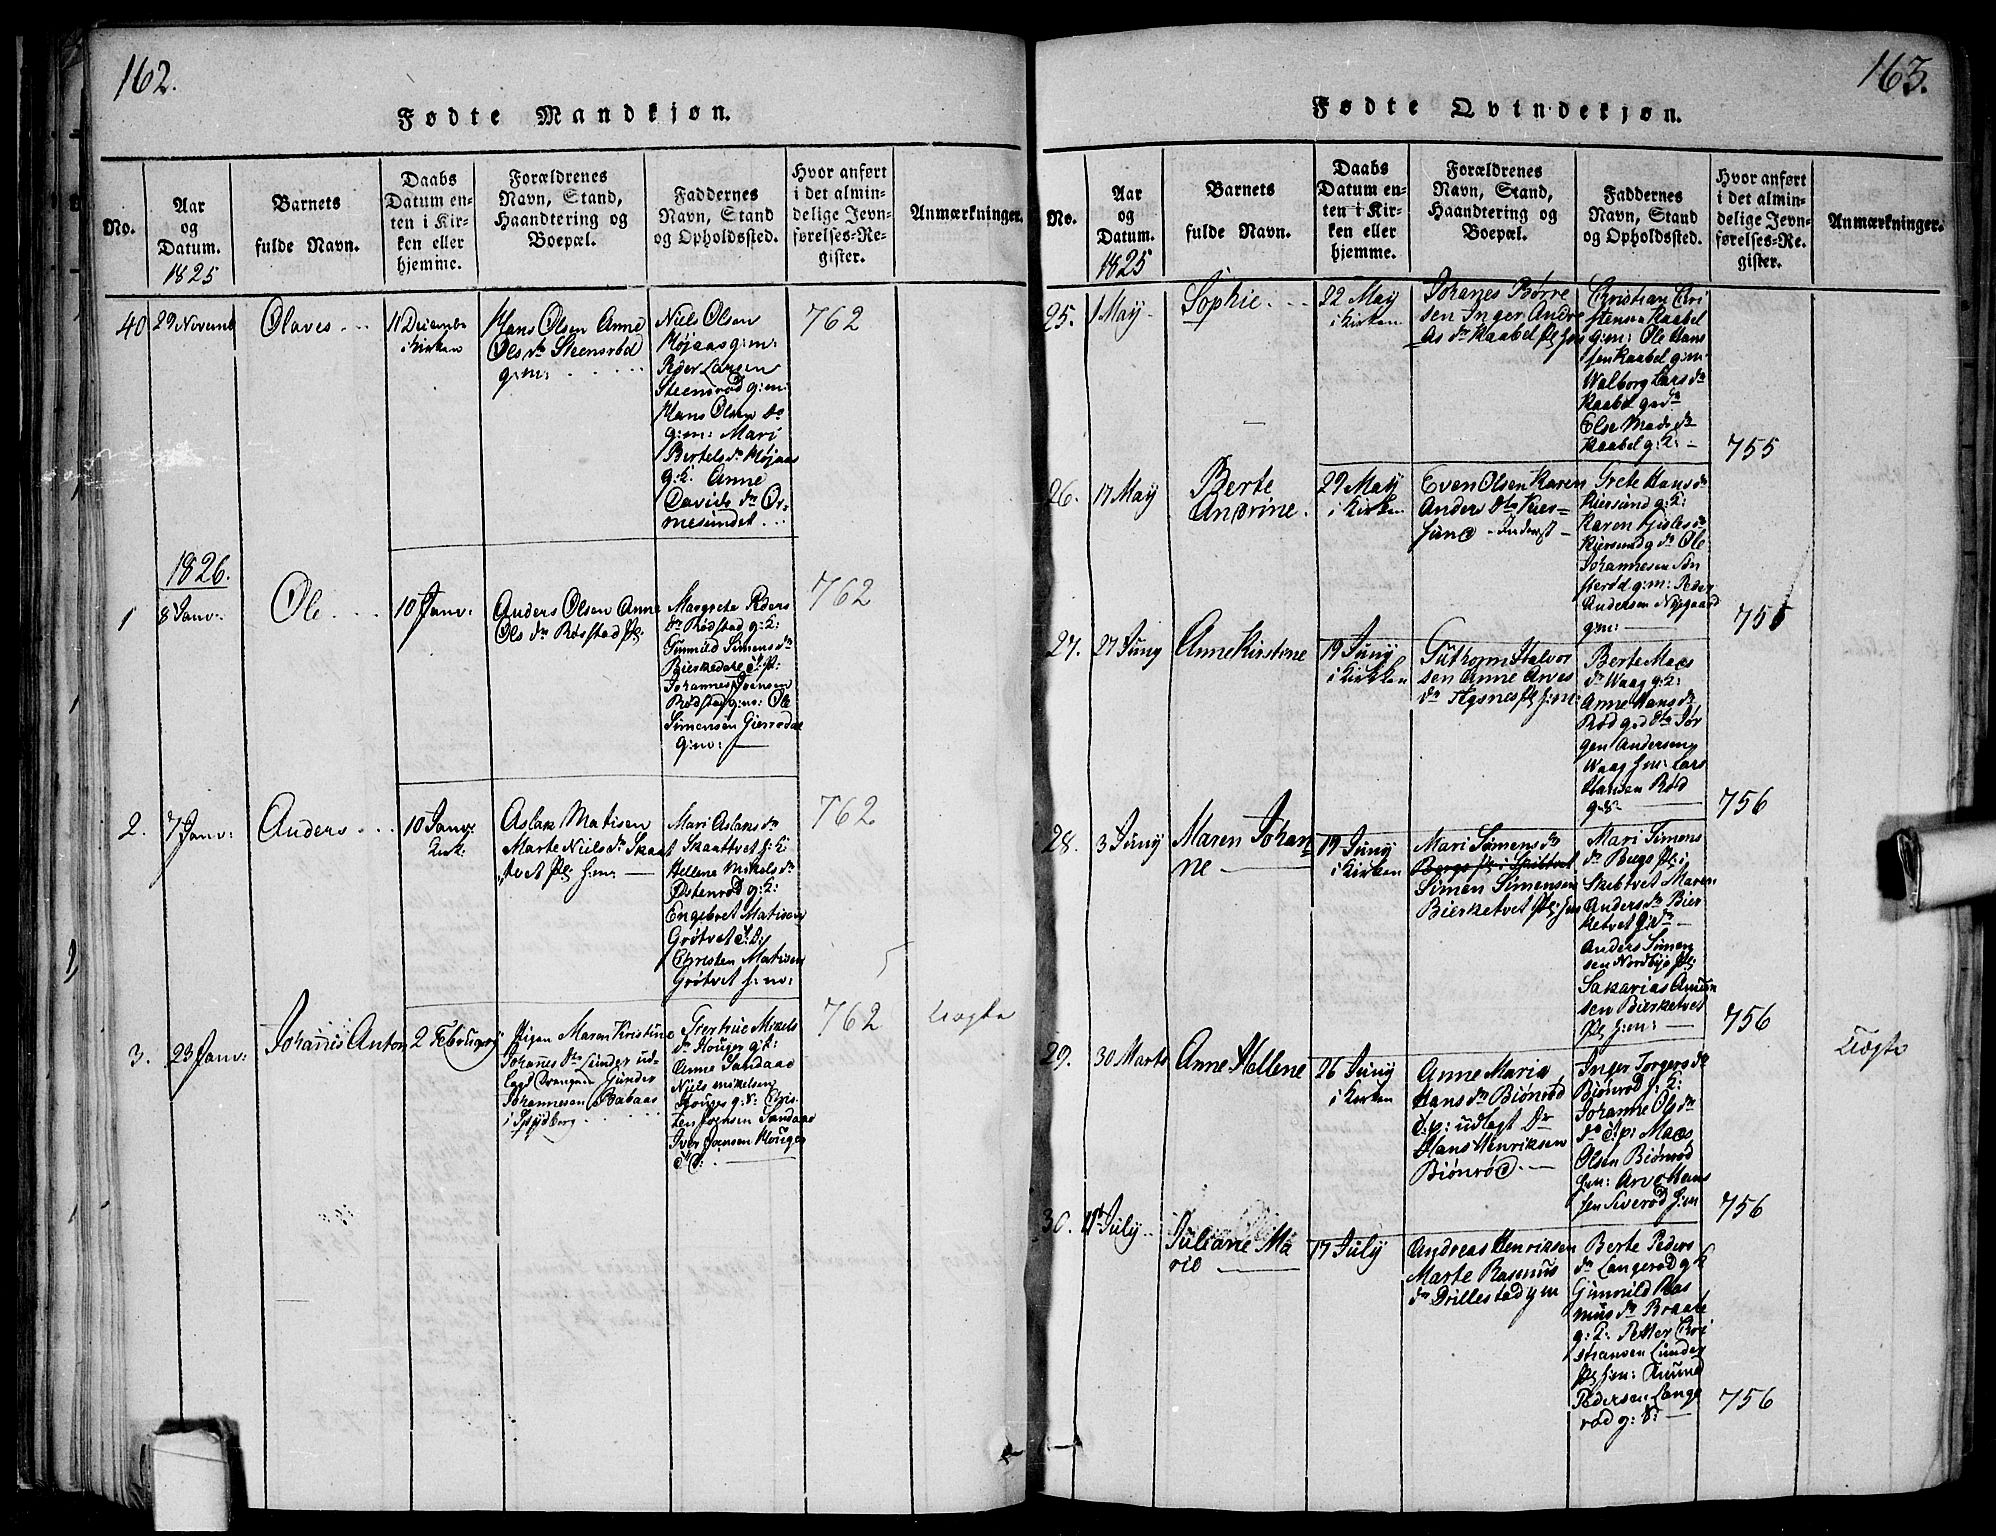 162.
Fødte Mandkjøn.
No.
Aar
og
Datum.
1825
Barnets
fulde Navn.
Daabs
Datum en-
ten i Kir-
ken eller
hjemme.
Forældrenes
Navn, Stand,
Haandtering og
Boepæl.
Faddernes
Navn, Stand
og Opholdssted.
Hvor anført
i det almin-
delige Jevn-
førelses-Re-
gister.
Anmærkninger.
40
29 Novemb
Olaves
11 Decembr
i Kirken
Hans Olsen Anne
Ols dr Steensrød
g:m:
Niels Olsen
Højaas g:m:
Peder Larsen
Steensrød g:m:
Hans Olsen Do
g:m: Mari
Bertels dr Højaas
g:k: Anne
Davids dr Or-
mesundet
762
1826.
1
8 Janv:
Ole
10 Janv:
Anders Olsen Anne
Ols dr Røstad pl:
Margrete Peders
dr Rødstad g:k:
Gunnild Simens dr
Bierkedere t:p:
Johannes Joensen
Rødstad g:m: Ole
Simensen Gjerrødal
g:m:
762
2.
7 Janv:
Anders
10 Janv:
Kirk:
Aslak Matisen
Marte Niels dr Skaat
tvet pl: h:m:
Mari Aslans dr
Skaattvet h:k:
Hellene Mikels dr
Ostenrød g:k:
Engebret Matisen
Grøtvet t:d:
Christen Matisen
Grøtvet h:m:
762
3.
23 Janv:
Johanes Anton
2 Februarij
Pigen Maren Kristine
Johanes dr Lunder ud-
lagd Drengen Gunder
Johannesen Rabaas
i Spydberg
Giertrue Mikels
dr Houger g:k:
Anne Sandaas
Niels Mikelsen
Houges g:s: Cris-
ten Joensen Sandaas
Iver Joansen Houger
t:d:
762
Uægte
163.
Fødte Qvindekjøn.
No.
Aar
og
Datum.
1825
Barnets
fulde Navn.
Daabs
Datum en-
ten i Kir-
ken eller
hjemme.
Forældrenes
Navn, Stand,
Haandtering og
Boepæl.
Faddernes
Navn, Stand
og Opholdssted.
Hvor anført
i det almin-
delige Jevn-
førelses-Re-
gister.
Anmærkninger.
25.
1 May
Sophie
22 May
i Kirken
Johanes Børre
sen Inger Andre
as dr Kaabel pl h:m
Christian Cri
stensen Kaabel
g:m: Ole Hans
sen Kaabel g:m:
Walborg Lars dr
Kaabel g: dr
Else Mads dr
Kaabel g:k:
755
26.
17 May
Berte
Andrine.
29 May
i Kirken
Even Olsen Karen
Anders dtr Kier-
sund - inderst -
Grete Hans dr
Kiersund g:k:
Karen Gisles dr
Kiersund g dr Ole
Johannesen Søn
sterød g:m: Peder
Andersen Nygaard
g:m:
755
27.
27 Juny
Anne Kirstine
19 Juny
i Kirken
Guthorm Halvor
sen Anne Arves
dr Tegsnes pl h:m:
Berte Maes
dr Waag g:k:
Anne Hans dr
Rød g: dr Jør
gen Andersen
Waag h:m: Lars
Hansen Rød
g:s:
756
28.
3 Juny
Maren Johan
ne
19 Juny
i Kirken
Mari Simens dr
Bergs pl: i Skibtvet
Simen Simensen
Bierketvet pl: h:m
Mari Simens
dr Bergs pl: i
Skibtvet Maren
Anders dr Bier
ketvet g: dr
Anders Simen
sen Nordbye pl:
Sakarias Amun
sen Bierketvet
pl: h:m:
756
29.
30 Marts
Anne Hellene
26 Juny
i Kirken
Anne Maria
Hans dr Biønrød
t:p: udlagt Dr
Hans Henriksen
Biønrød.
Inger Torgers dr
Biønrød h:k:
Johanne Ols dr
do t:p: Maes
Olsen Biønrød
h:m: Arve Hans
sen Siverød h:m
756
Uægte
30.
11 July
Juliane Ma
rie
17 July
Andreas Henriksen
Marte Rasmus
dr Drillestad g m
Berte Peders
dr Langerød g k
Gunnild Ras
mus dr Braate
g:k: Petter Cri
stiansen Lunder
pl h:m: Knund
Pedersen Lange
rød g:s:
756